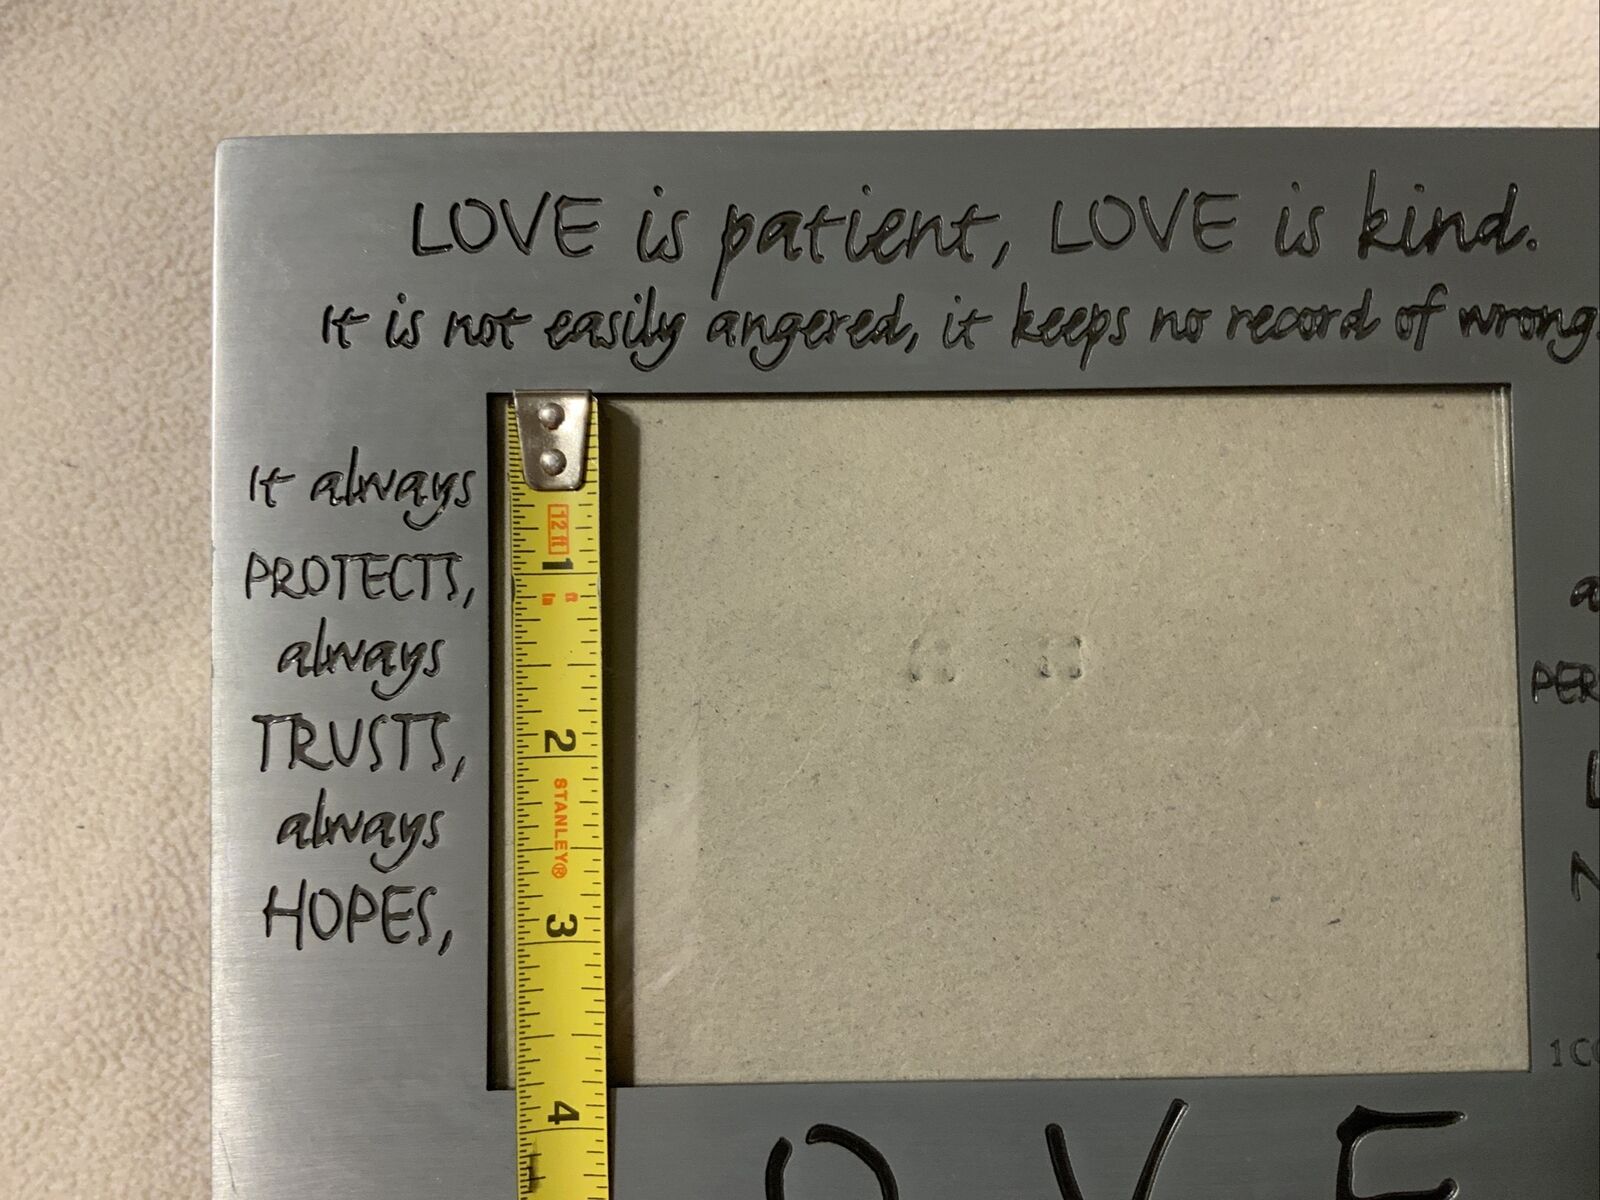 LOVE is patient, LOVE is kind.
It is not easily angered, it keeps no record of wrong
It always
PROTECTS,
always
TRUSTS,
always
HOPES,
12 ft
1
2
STANLEY®
3
4
a
PER
1CO
OVE